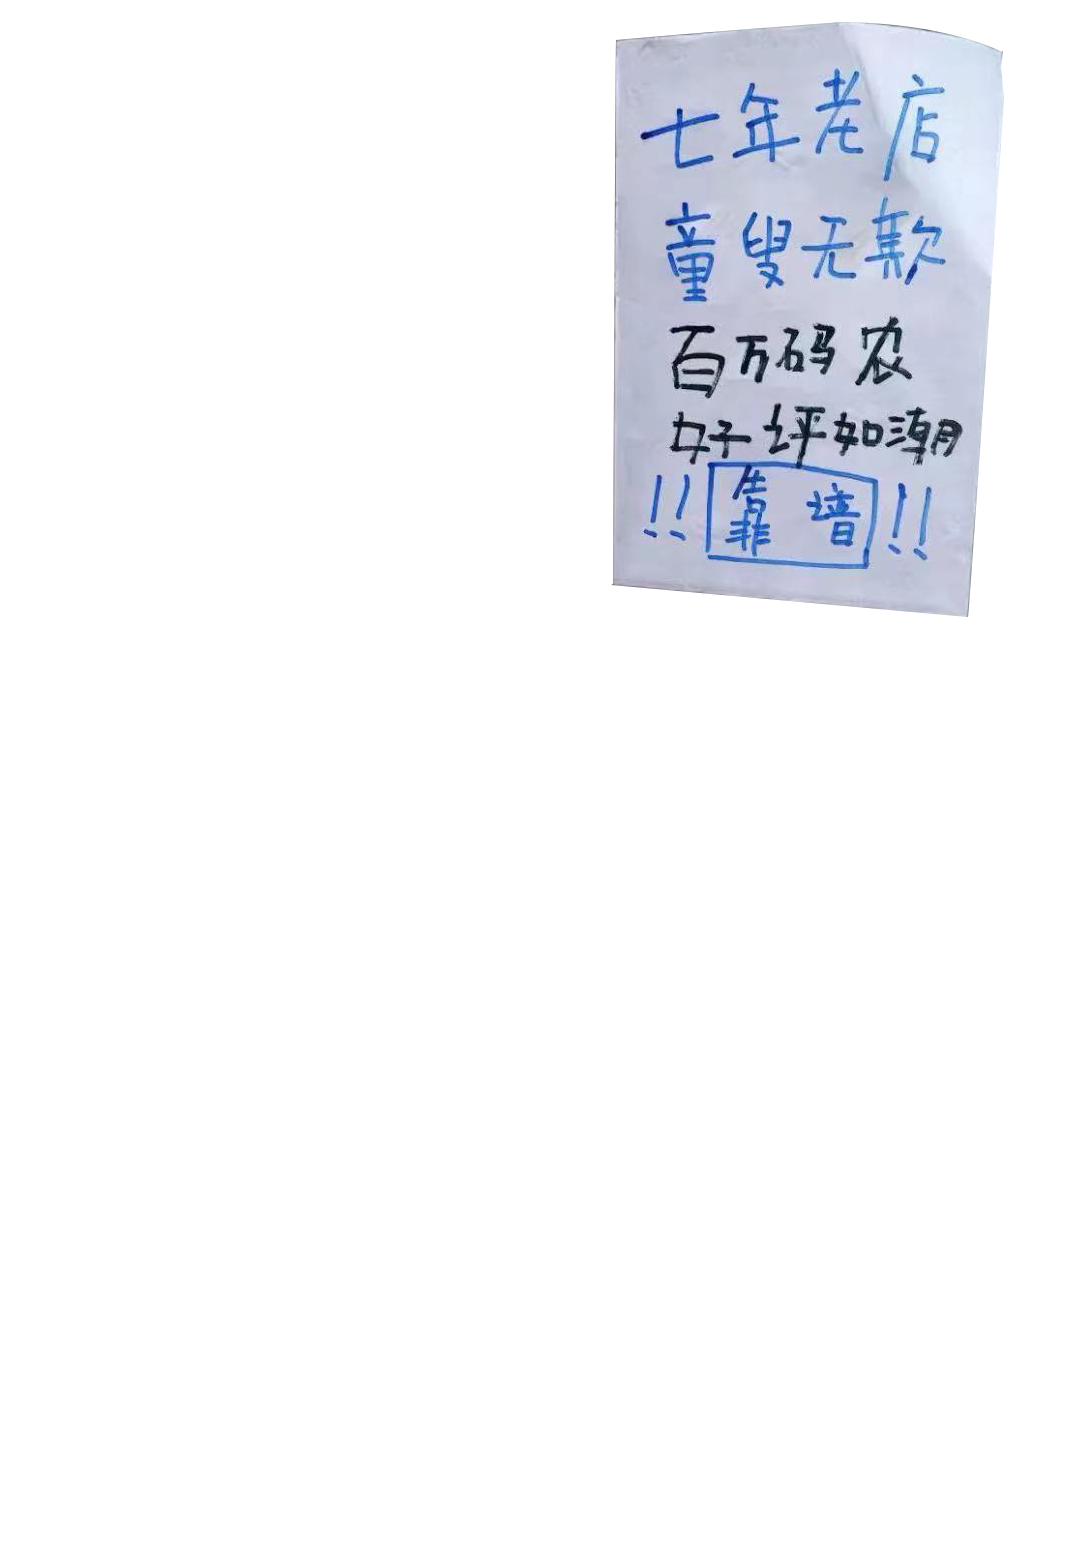 七年老店
童叟无欺
百万码农
好评如潮
!!靠谱!!